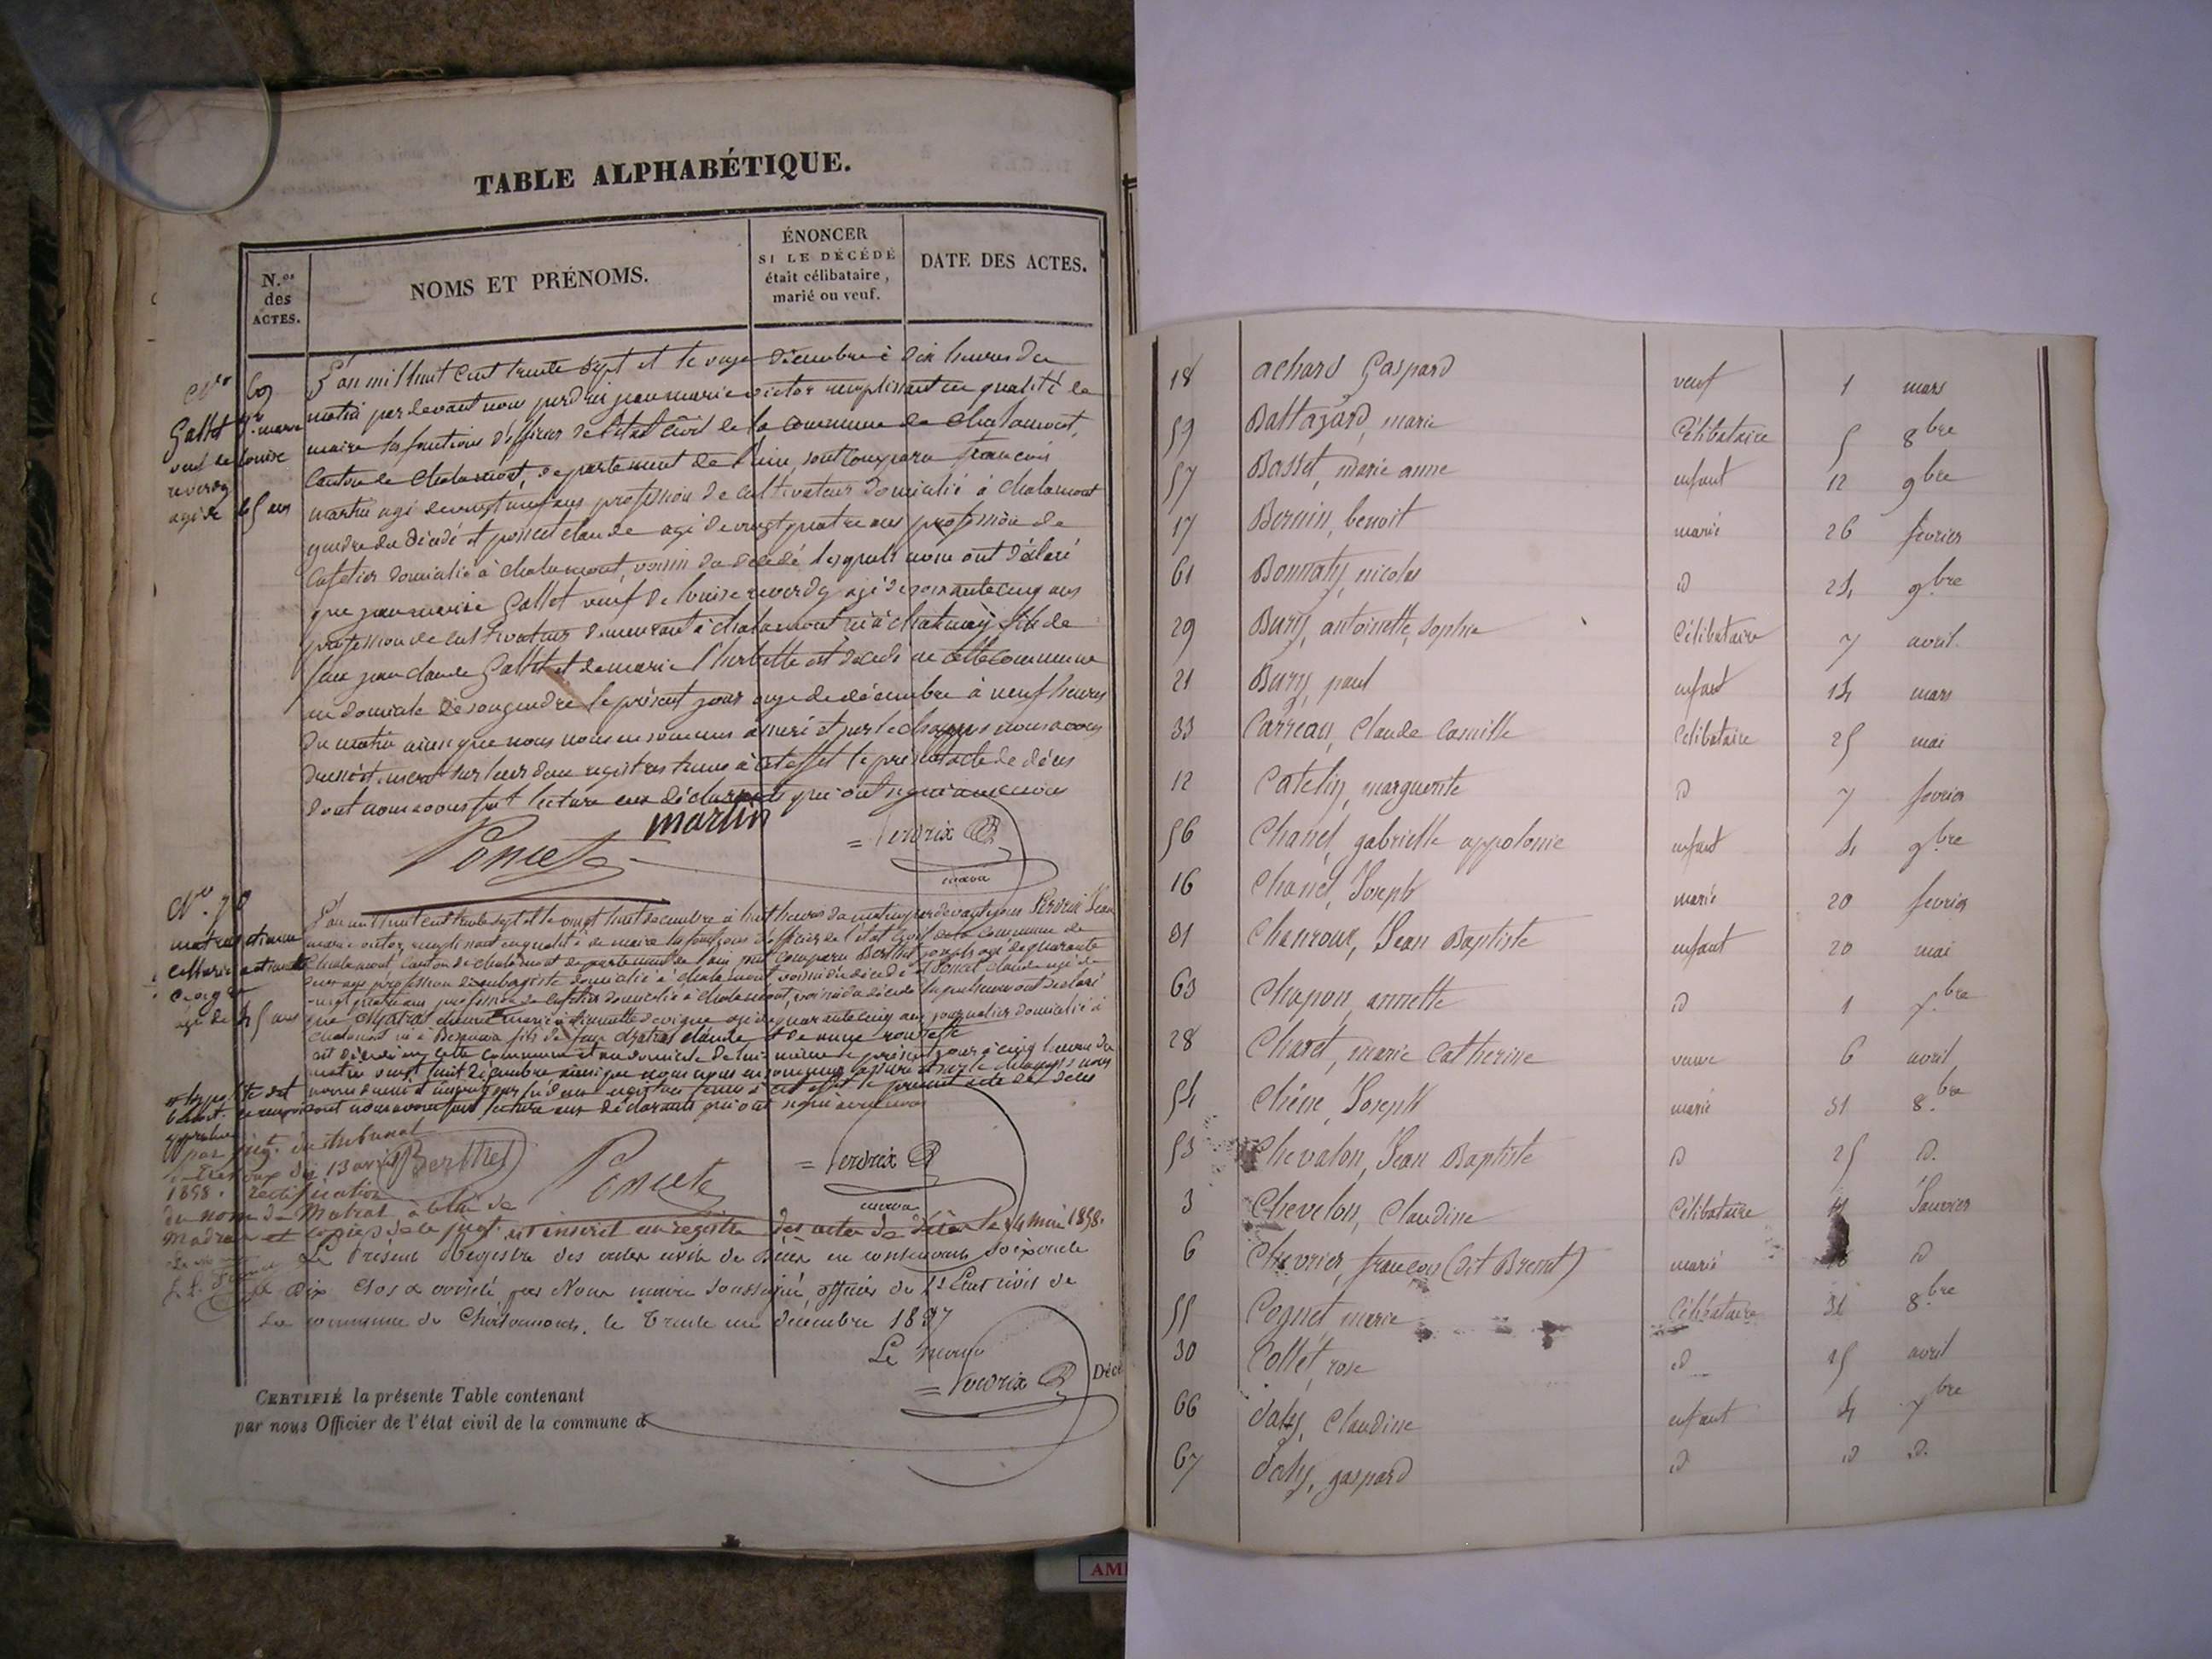 TABLE ALPHABÉTIQUE.
N.os des ACTES.
NOMS ET PRÉNOMS.
ÉNONCER SI LE DÉCÉDÉ était célibataire, marié ou veuf.
DATE DES ACTES.
No 69
Gallet Jn marie
veuf de louise
reverdy
agé de 65 ans
L'an mil huit cent trente sept et le onze décembre à dix heures du
matin par devant nous perdrix jean marie victor remplissant en qualité de
maire les fonctions d'officier de l'état civil de la commune de chalamont,
Canton de chalamont, departement de l'ain, sont comparu francois
martin agé de vingt neuf ans profession de cultivateur domicilié à chalamont
gendre du décédé et poncet claude agé de vingt quatre ans profession de
Cafetier domicilié à chalamont, voisin du décédé lesquels nous ont déclaré
que jean marie Gallet veuf de louise reverdy agé de soixante cinq ans
profession de cultivateur demeurant à chalamont né à chatenay fils de
feu jean claude Gallet et de marie l'herbette est décédé en cette commune
au domicile de son gendre le présent jour onze de décembre à neuf heures
du matin ainsi que nous nous en sommes assuré et sur le champ nous avons
dressé et inseré sur les deux registres tenus à cet effet le présent acte de décès
dont nous avons fait lecture aux déclarants qui ont signé avec nous
martin
Poncet
= Perdrix
maire
No. 70
matras etienne
agé de 45 ans
L'an mil huit cent trente sept et le vingt huit decembre à huit heures du matin par devant nous Perdrix Jean
marie victor, remplissant en qualité de maire les fonctions d'officier de l'état civil de la commune de
Chalamont, Canton de chalamont departement de l'ain sont comparu Berthet joseph agé de quarante
deux ans profession d'aubergiste domicilié à chalamont voisin du décédé et Poncet claude agé de
vingt quatre ans profession de cafetier domicilié à chalamont, voisin du décédé lesquels nous ont declaré
que Matras etienne marié à antoinette agé de quarante cinq ans journalier domicilié à
chalamont né à fils de feu Matras claude et de
est décédé en cette commune et au domicile de lui-même le présent jour à cinq heures du
matin vingt huit décembre ainsi que nous nous en sommes assuré et sur le champ nous
avons dressé et inseré sur les deux registres tenus à cet effet le présent acte de décès
dont nous avons fait lecture aux déclarants qui ont signé avec nous
Berthet
Poncet
= Perdrix
maire
par jugt. du tribunal
de Trévoux du 13 avril
1898. rectification
du nom de Matrat à celui de
Madras et copie de ce jugt. est inscrit au registre des actes de décès le 14 mai 1898.
Le Présent Registre des actes civils de Décès en contenant soixante
et Dix Clos et arrêté par Nous maire soussigné, officier de l'Etat civil de
La commune de Chalamont. le Trente un décembre 1837
Le maire
= Perdrix
CERTIFIÉ la présente Table contenant
par nous Officier de l'état civil de la commune d
Déc
AM
18 achard Gaspard veuf 1 mars
59 Battazard, marie Célibataire 5 8bre
57 Basset, marie anne enfant 12 9bre
17 Bernin, benoit marié 26 fevrier
61 Bonnaty, nicolas d 24 9bre
29 Bury, antoinette, sophie Célibataire 7 avril
21 Bury, paul enfant 14 mars
33 Carreau, Claude Camille Célibataire 25 mai
12 Catelin, marguerite d 7 fevrier
56 Chanel, gabrielle appolonie enfant 4 9bre
16 Chanel, Joseph marié 20 fevrier
31 Chanroux, Jean Baptiste enfant 20 mai
63 Chapon, annette d 1 xbre
28 Charet, marie Catherine veuve 6 avril
54 Chêne, Joseph marié 31 8.bre
53 Chevalon, Jean Baptiste d 25 d.
3 Chevelon, Claudine Célibataire Janvier
6 Chevrier, françois (dit Brenat) marié d
55 Cognet, marie Célibataire 31 8bre
30 Collet, rose d 25 avril
66 daly, Claudine enfant 4 xbre
67 daly, gaspard d d d.